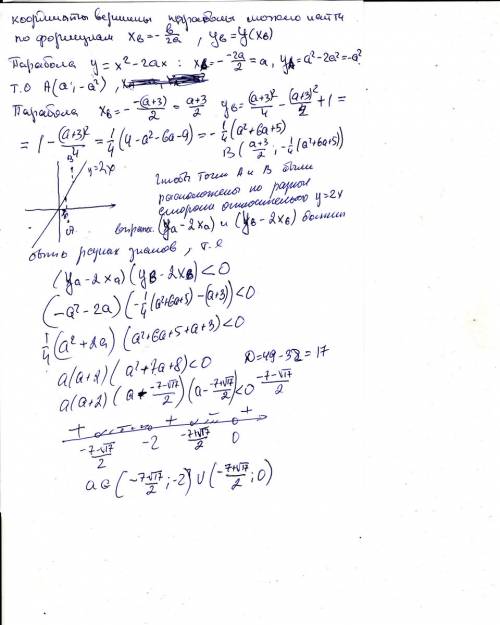 координаты вершины параболы можно найти
по формулам x_B = -b/2a , y_B = y(x_B)
Парабола y = x² - 2ax : x_B = - -2a/2 = a, y_A = a² - 2a² = -a²
т.о A(a; -a²),
Парабола x_B = - -(a+3)/2 = a+3/2 y_B = (a+3)²/4 - (a+3)²/2 + 1 =
= 1 - (a+3)²/4 = 1/4(4 - a² - 6a - 9) = -1/4(a² + 6a + 5)
B(a+3/2; -1/4(a²+6a+5))
y = 2x
чтобы точки A и B были
расположены по разные
стороны относительно y = 2x
выражен. (y_a - 2x_a) и (y_B - 2x_B) должны
быть разных знаков, т.е
(y_a - 2x_a)(y_B - 2x_B) < 0
(-a² - 2a)(-1/4(a² + 6a + 5) - (a+3)) < 0
1/4(a² + 2a)(a² + 6a + 5 + a + 3) < 0
a(a+2)(a² + 7a + 8) < 0 D = 49 - 32 = 17
a(a+2)(a - -7-√17/2)(a - -7+√17/2) < 0 -7-√17/2
+ - + - +
-7-√17/2 -2 -7+√17/2 0
a ∈ (-7-√17/2; -2) ∪ (-7+√17/2; 0)